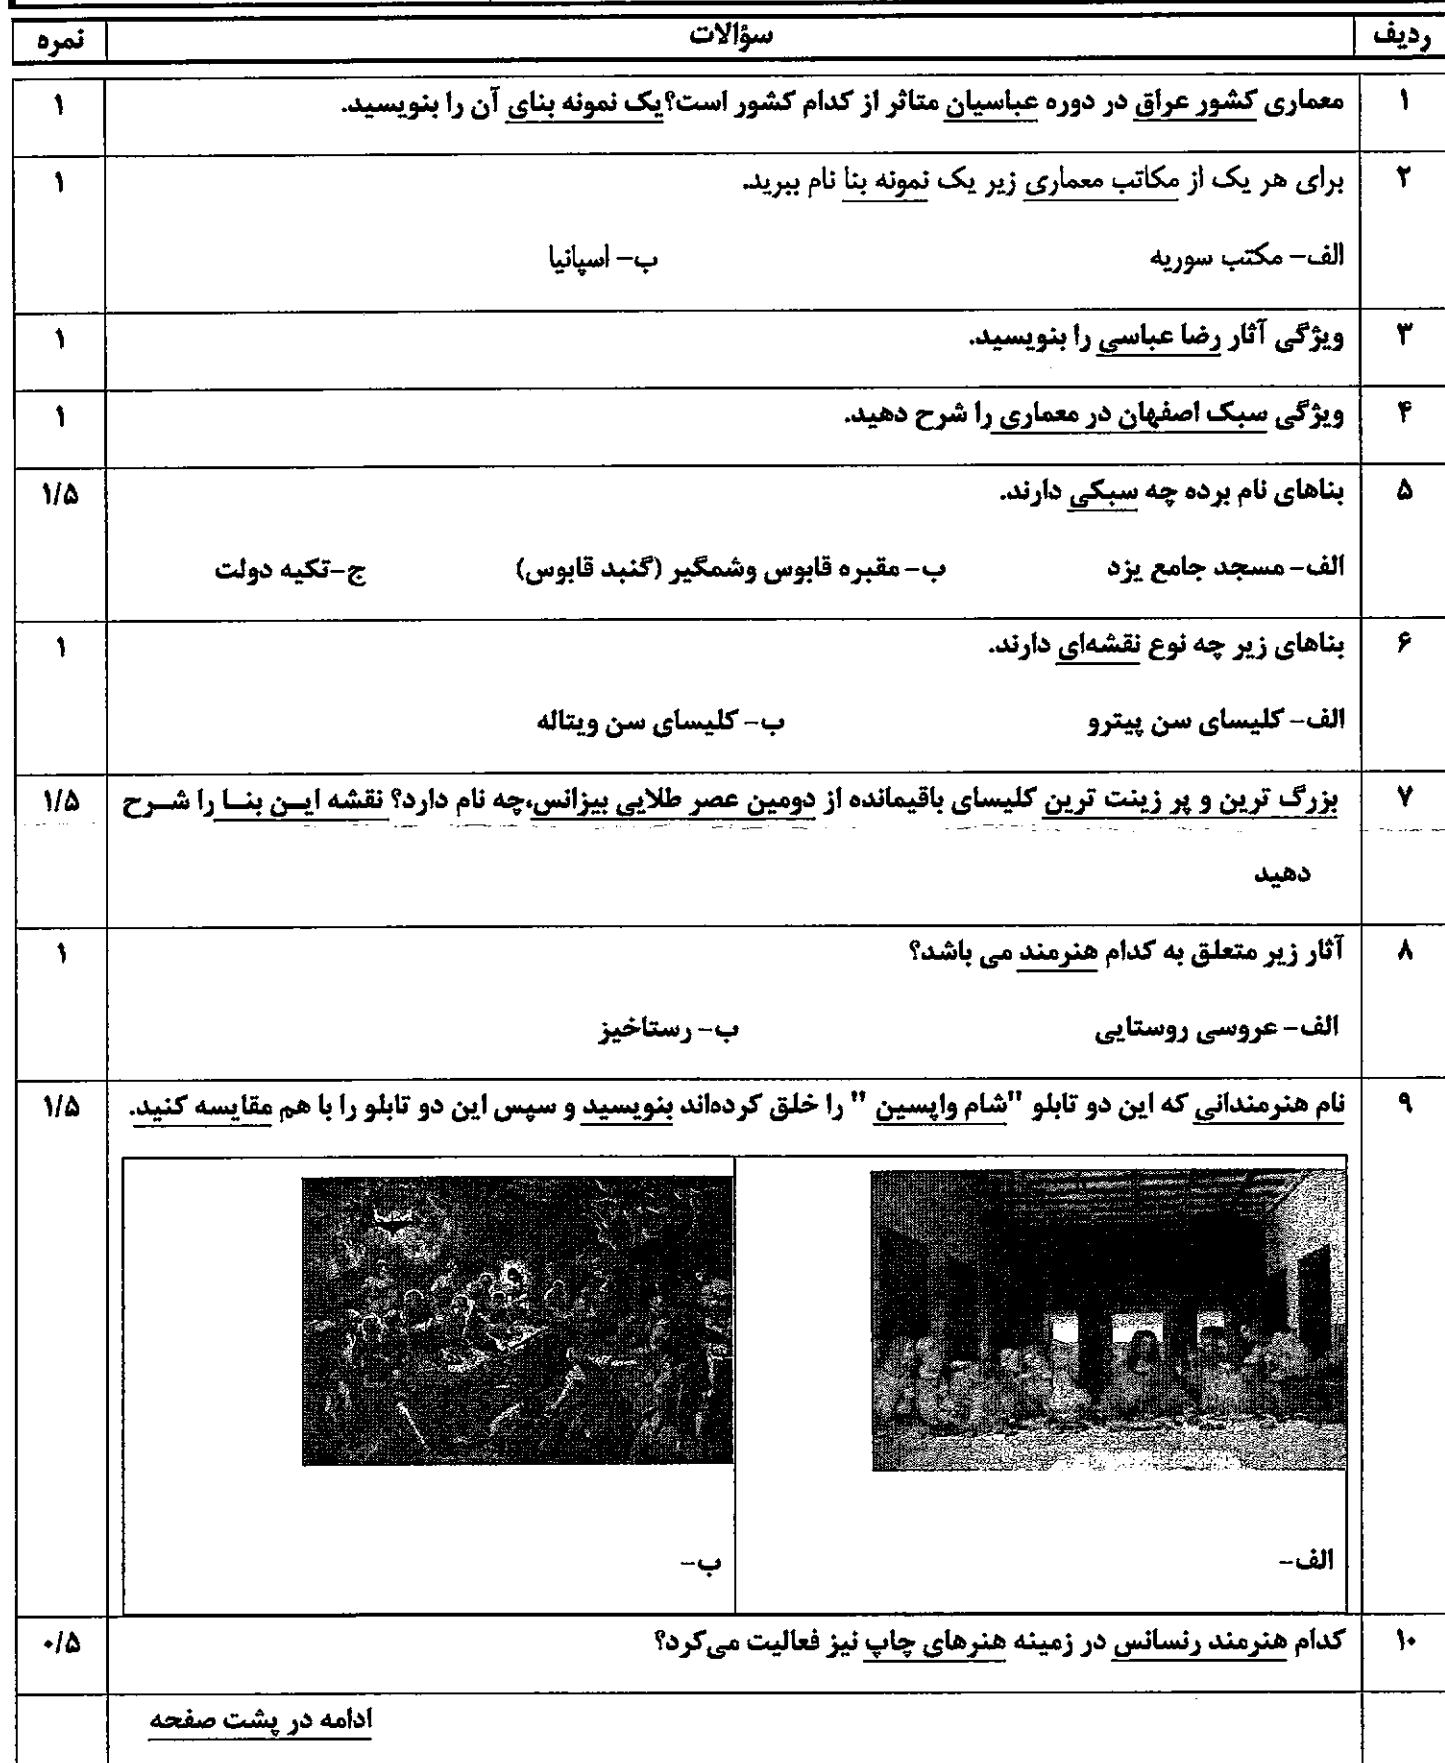 ردیف سؤالات نمره
۱ معماری کشور عراق در دوره عباسیان متاثر از کدام کشور است؟یک نمونه بنای آن را بنویسید. ۱
۲ برای هر یک از مکاتب معماری زیر یک نمونه بنا نام ببرید. ۱
الف- مکتب سوریه ب- اسپانیا
۳ ویژگی آثار رضا عباسی را بنویسید. ۱
۴ ویژگی سبک اصفهان در معماری را شرح دهید. ۱
۵ بناهای نام برده چه سبکی دارند. ۱/۵
الف- مسجد جامع یزد ب- مقبره قابوس وشمگیر (گنبد قابوس) ج-تکیه دولت
۶ بناهای زیر چه نوع نقشه‌ای دارند. ۱
الف- کلیسای سن پیترو ب- کلیسای سن ویتاله
۷ بزرگ ترین و پر زینت ترین کلیسای باقیمانده از دومین عصر طلایی بیزانس،چه نام دارد؟ نقشه ایـن بنـا را شـرح ۱/۵
دهید
۸ آثار زیر متعلق به کدام هنرمند می باشد؟ ۱
الف- عروسی روستایی ب- رستاخیز
۹ نام هنرمندانی که این دو تابلو "شام واپسین " را خلق کرده‌اند بنویسید و سپس این دو تابلو را با هم مقایسه کنید. ۱/۵
الف- ب-
۱۰ کدام هنرمند رنسانس در زمینه هنرهای چاپ نیز فعالیت می‌کرد؟ ۰/۵
ادامه در پشت صفحه